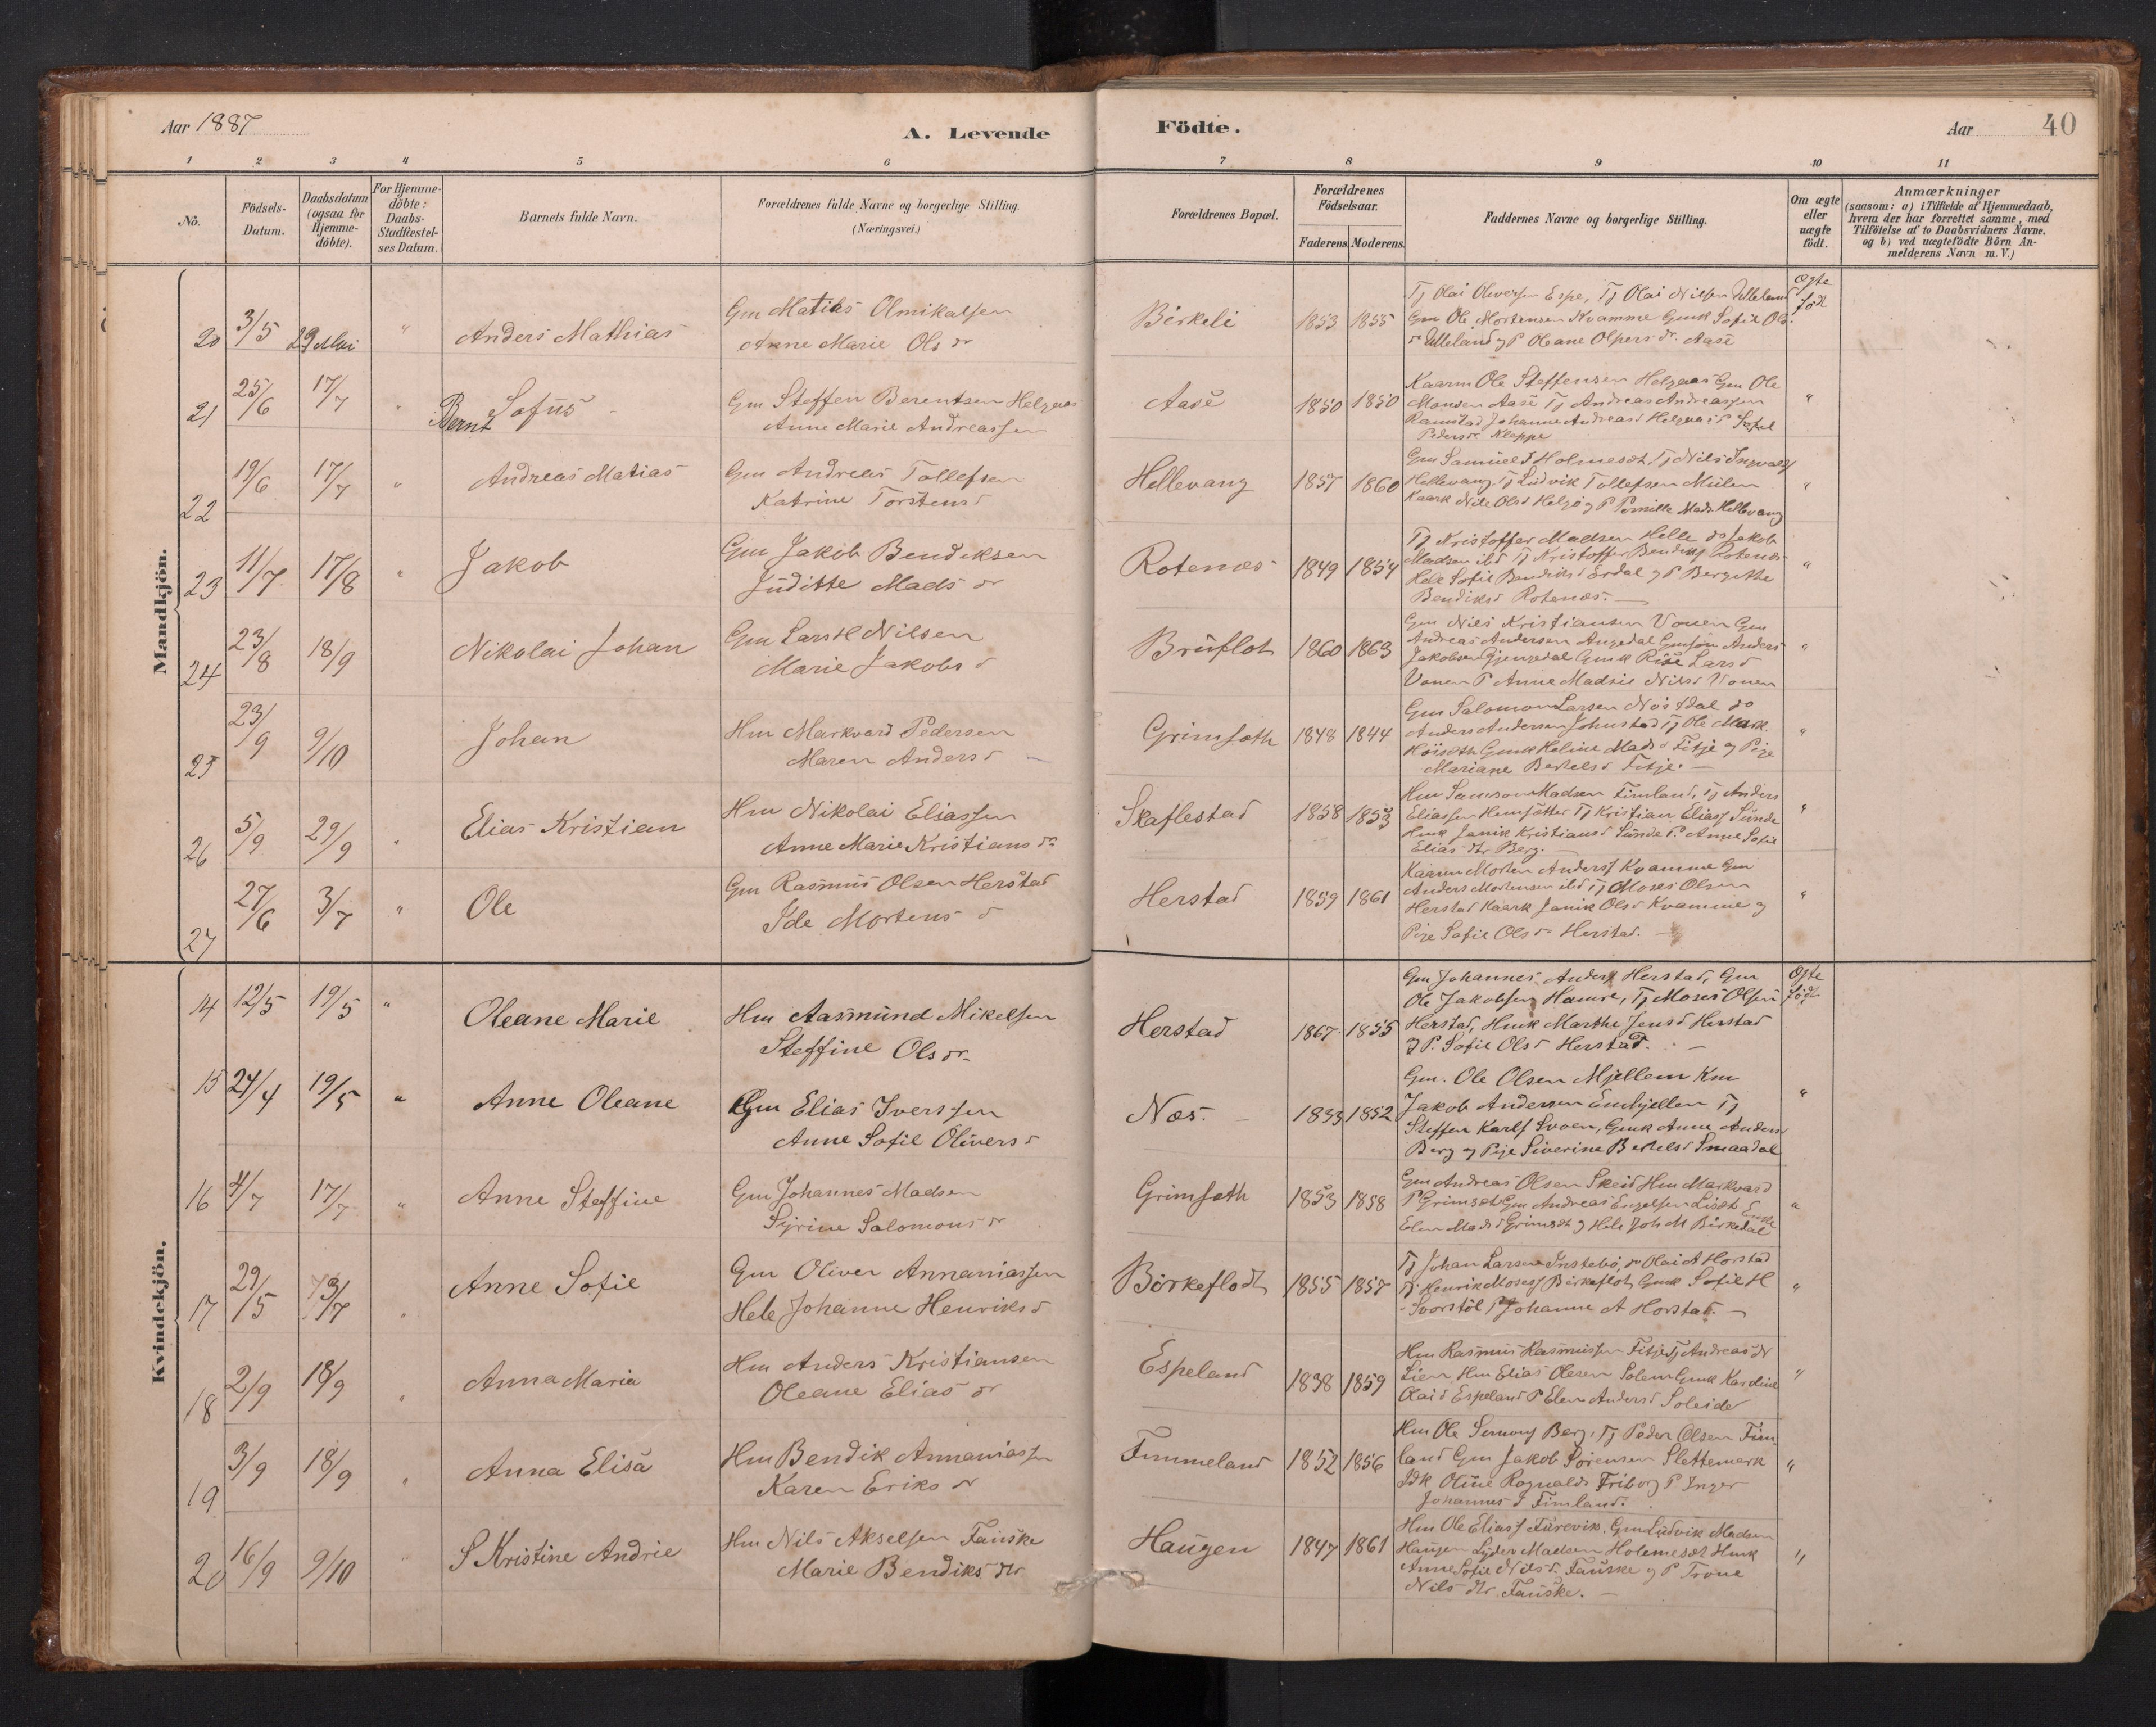 Aar 1887
A. Levende
Födte.
Aar
40
1 2 3 4 5 6 7 8 9 10 11
No.
Födsels-
Datum.
Daabsdatum
(ogsaa for
Hjemme-
döbte).
For Hjemme-
döbte:
Daabs-
Stadfæstel-
ses Datum.
Barnets fulde Navn.
Forældrenes fulde Navne og borgerlige Stilling.
(Næringsvei.)
Forældrenes Bopæl.
Forældrenes
Födselsaar.
Faderens Moderens
Faddernes Navne og borgerlige Stilling.
Om ægte
eller
uægte
födt.
Anmærkninger
(saasom: a) i Tilfælde af Hjemmedaab,
hvem der har forrettet samme, med
Tilföielse af to Daabsvidners Navne.
og b) ved uægtefödte Börn An-
melderens Navn m. V.)
Mandkjön.
20 3/5 29 Mai " Anders Mathias
Gm Matias Olmikalsen
Anne Marie Ols dr
Birkeli 1853 1855
Tj Olai Oliversen Espe, Tj Olai Nilsen Ulleland
Gm Ole Mortensen Kvamme Gmk Sofie Ols
Ulleland og P Oleane Olpers dr Aase
Ægte
föd
21 25/6 17/7 " Bernt Sofus
Gm Steffen Berentsen Helgaas
Anne Marie Andreassen
Aase 1850 1850
Kaarm Ole Steffensen Helgaas Gm Ole
Monsen Aase Tj Andreas Andreassen
Ramstad Johanne Andreasd Helgaas P Sofie
Pedersd Kleppe
"
22 19/6 17/7 " Andreas Matias
Gm Andreas Tollefsen
Katrine Torstensd
Hellevang 1857 1860
Gm Samuel Holmeset, Tj Nils Ingvalds
Hellevang, Tj Ludvik Tollefsen
Kaark Olsd og P Pernille Madsd Hellevang
"
23 11/7 17/8 " Jakob
Gm Jakob Bendiksen
Juditte Mads dr
Rotenæs 1849 1854
Tj Kristoffer Madsen Helle do Jakob
Madsen ibd Tj Kristoffer Bendiks Rotenæs
Sofie Bendiksd Erdal og P Bergitthe
Bendiksd Rotenæs.
"
24 23/8 18/9 Nikolai Johan
Gm Lars H Nilsen
Marie Jakobsd
Bruflot 1860 1863
Gm Nils Kristiansen Vonen Gm
Andreas Andersen Angedal Anders
Jakobsen Gjengedal Gmk Larsd
Vonen P Anne Nilsd Vonen
"
25 23/9 9/10 Johan
Hm Markvard Pedersen
Maren Andersd
Grimseth 1848 1844
Gm Salomon Larsen do
Anders Andersen Johnstad Tj Ole Mark.
Höiseth Gmk Heline Madsd Fitje og Pige
Mariane Bertelsd Fitje.
"
26 5/9 29/9 " Elias Kristian
Hm Nikolai Eliassen
Anne Marie Kristians dr
Skaflestad 1858 1853
Hm Samson Madsen Fimland, Tj Anders
Eliassen Tj Kristian Elias Sunde
Hmk Janik Kristiansd Sunde P. Anne Sofie
Elias dtr Berg.
"
27 27/6 3/7 " Ole
Gm Rasmus Olsen Herstad
Ide Mortensd
Herstad 1859 1861
Kaarm Morten Anders Kvamme Gm
Anders Mortensen ibd Tj Moses Olsen
Herstad Kaark Janik Olsd Kvamme og
Pige Sofie Ols dr Herstad.
"
Kvindekjön.
14 12/5 19/5 " Oleane Marie
Hm Aasmund Mikelsen
Steffine Ols dr
Herstad 1867 1855
Gm Johannes Anders Herstad, Gm
Ole Jakobsen Hamre, Tj Moses Olsen
Herstad, Hmk Marthe Jensd Herstad
og P. Sofie Olsd Herstad.
Ægte
föd
15 24/4 19/5 " Anne Oleane
Gm Elias Iverssen
Anne Sofie Oliversd
Næs. 1833 1852
Gm. Ole Olsen Mjellem Km
Jakob Andersen Emhjellen Tj
Steffen Karls Svoen, Gmk Anne Andersd
Berg og Pige Siverine Bertelsd Smaadal
"
16 4/7 17/7 " Anne Steffine
Gm Johannes Madsen
Syrine Salomons dr
Grimseth 1853 1858
Gm Andreas Olsen Skeid Hm Markvard
P Grimset Gm Andreas Engelsen Liset Enke
Elen Madsd Grimset og Hele Joh M Birkedal
"
17 29/5 3/7 " Anne Sofie
Gm Oliver Annaniassen
Hele Johanne Henriksd
Birkeflodt 1855 1857
Tj Johan Larsen Instebö, do Olai A Horstad
Tj Henrik Moses Birkeflot, Gmk Sofie H
Svorstöl P Johanne A Horstad.
"
18 2/9 18/9 " Anna Maria
Hm Anders Kristiansen
Oleane Elias dr
Espeland 1838 1859
Hm Rasmus Rasmussen Fitje Tj Andreas
Lien, Hm Elias Olesen Solem Gmk Karoline
Olaisd Espeland P Elen Andersd Soleide
"
19 3/9 18/9 " Anna Elisa
Hm Bendik Annaniassen
Karen Eriks dr
Fimmeland 1852 1856
Hm Ole Simons Berg, Tj Peder Olsen Fim
land Gm Jakob Sörensen Slettemark
Oline Ragnalds Friborg P Inger
Johannes d Fimland.
"
20 16/9 9/10 " S Kristine Andrie
Hm Nils Akselsen Fauske
Marie Bendiks dtr
Haugen 1847 1861
Hm Ole Elias Furevik. Gm Ludvik Madsen
Haugen Lyder Madsen Holemeset Hmk
Anne Sofie Nilsd. Fauske og P Trone
Nils dtr Fauske.
"